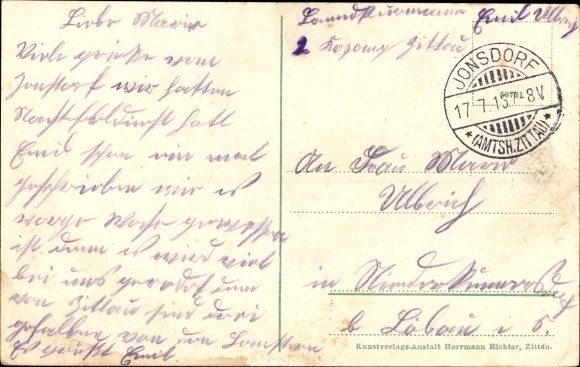 Liebe Marie
Viele grüße vom
Jonsdorf wir hatten
Nachtfelddienst hatt
Emil schon ein mal
geschrieben wie es
vorge Woche gewessen
ist denn es wird viel
bei uns geredet
von Zittau sind drei
gefallen von den
Es grüßt Emil.
Landsturmmann Emil Ulbrich
2 Kopomp Zittau
JONSDORF
17 7 15 7-8V
* (AMTSH. ZITTAU) *
An Frau Marie
Ulbrich
in Niederkunnersdorf
b Löbau i S.
Kunstverlags-Anstalt Herrmann Richter, Zittau.